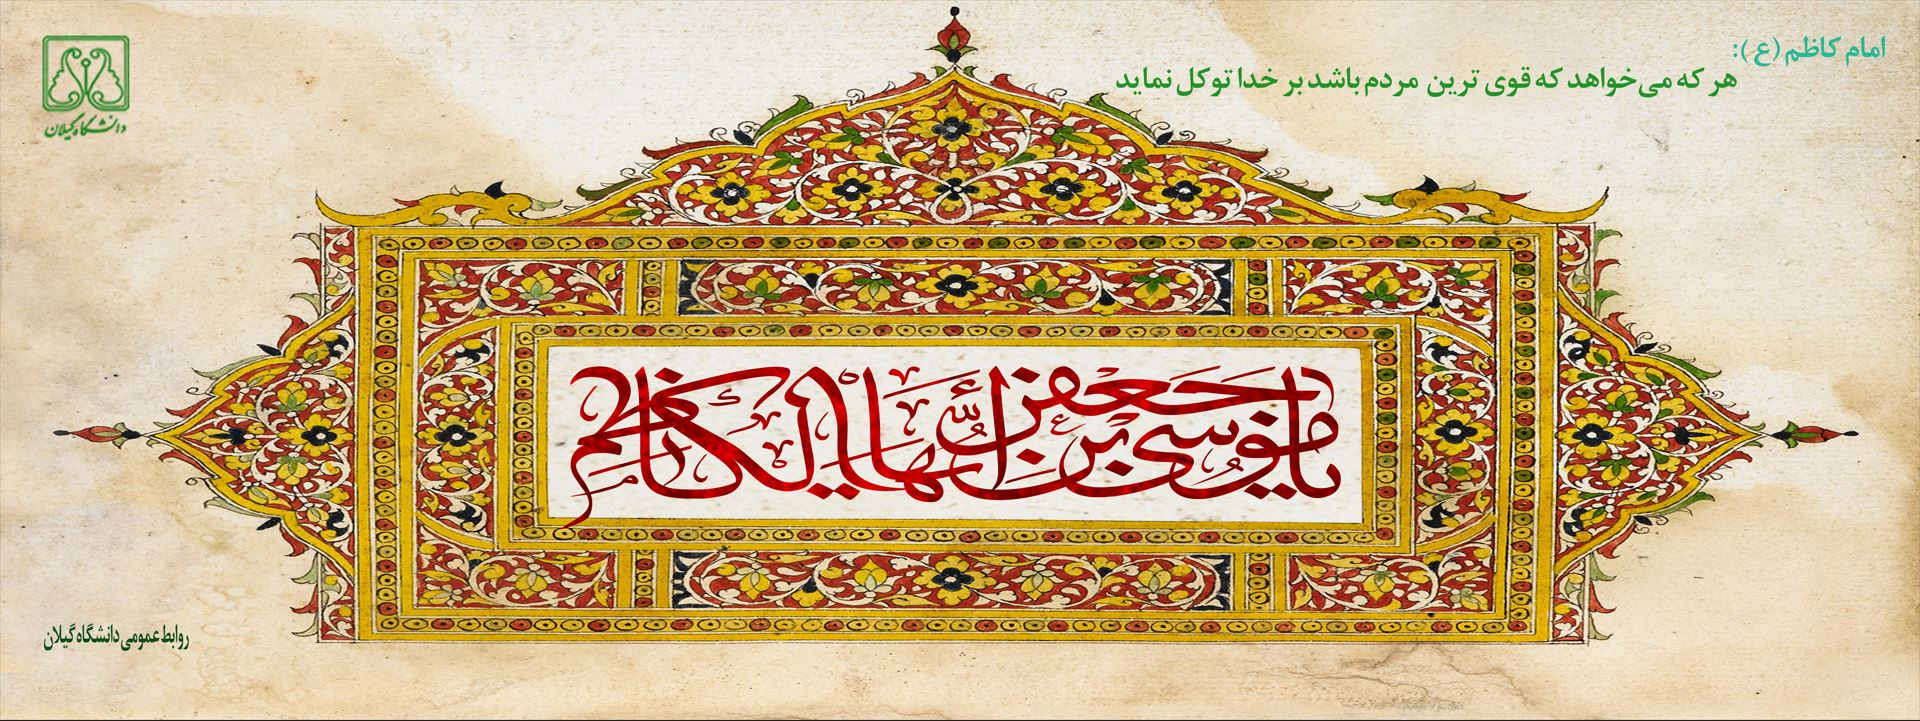 امام کاظم (ع):
هر که می‌خواهد که قوی ترین مردم باشد بر خدا توکل نماید
دانشگاه گیلان
یا موسی بن جعفر ایها الکاظم
روابط عمومی دانشگاه گیلان